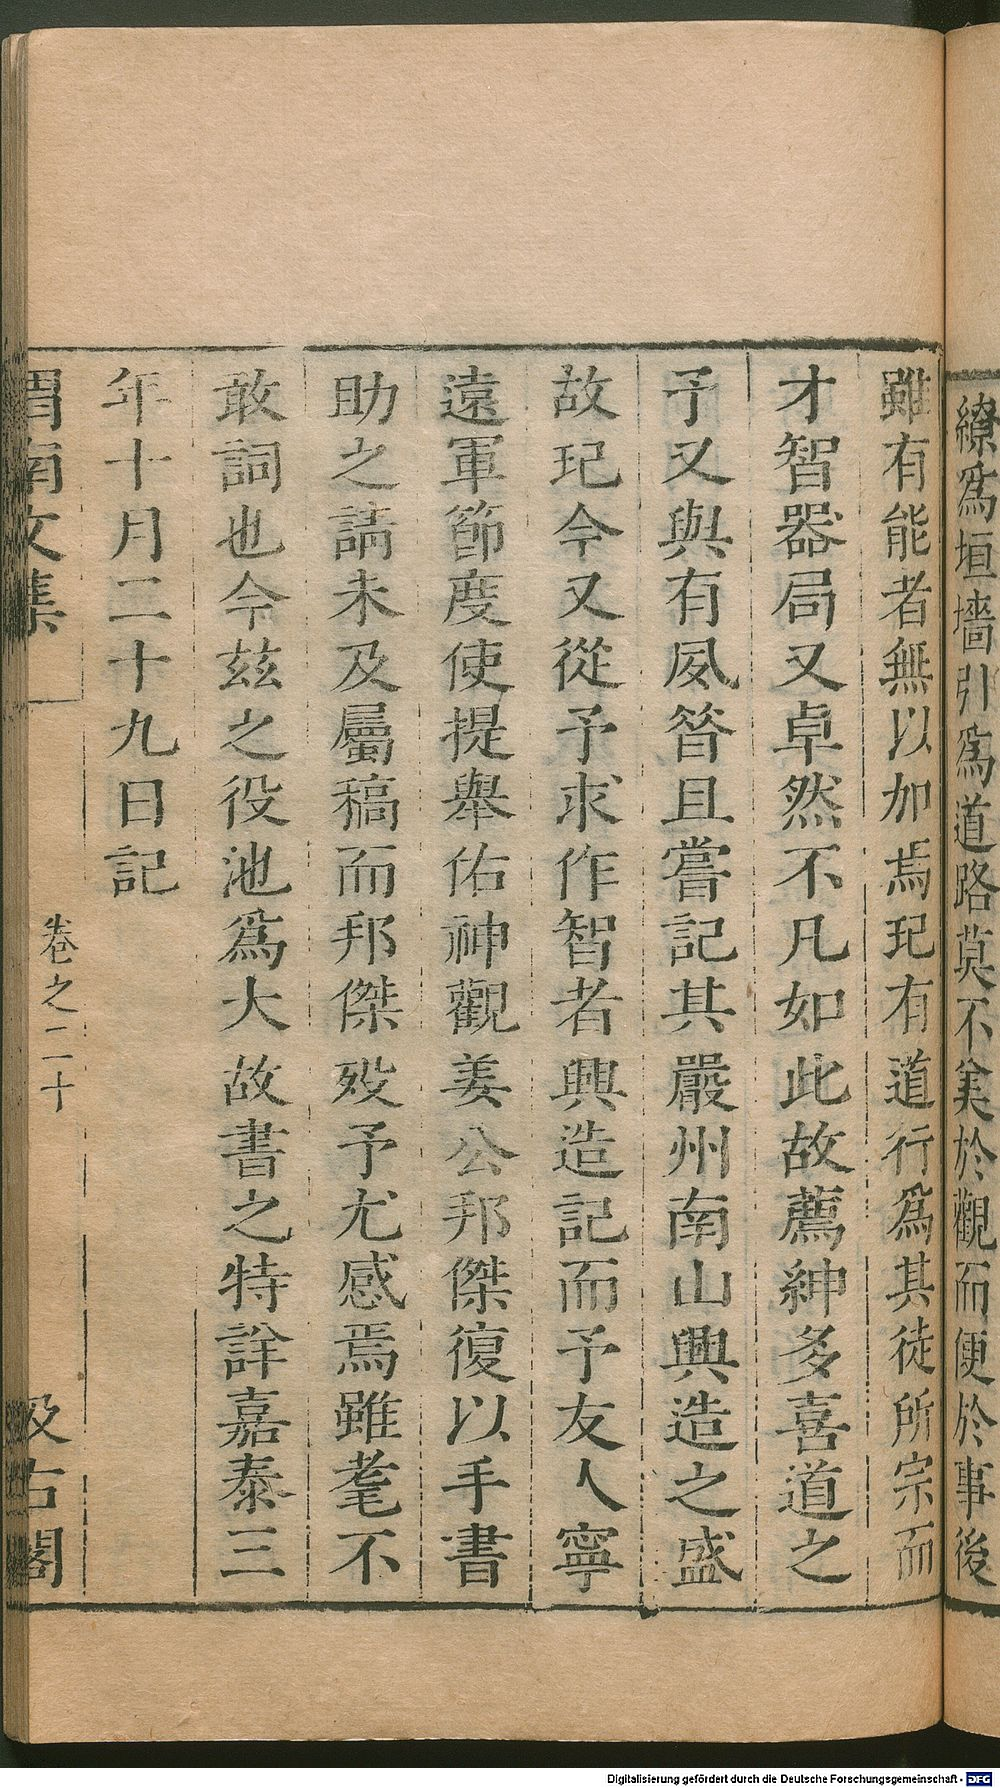 繚爲垣墻引爲道路莫不羙於觀而便於事後
雖有能者無以加焉玘有道行爲其徒所宗而
才智器局又卓然不凡如此故薦紳多喜道之
予又與有夙咎且嘗記其嚴州南山興造之盛
故玘今又從予求作智者興造記而予友人寧
遠軍節度使提舉佑神觀姜公邦傑復以手書
助之請未及屬稿而邦傑歿予尤感焉雖耄不
敢詞也今兹之役池爲大故書之特詳嘉泰三
年十月二十九日記
渭南文集
卷之二十
汲古閣
Digitalisierung gefördert durch die Deutsche Forschungsgemeinschaft - DFG